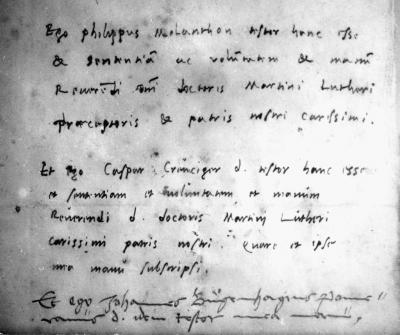 Ego philippus Melanthon testor hanc esse
& sententiā ac voluntatem & manū
Reverēdi dm̄ doctoris Martini Lutheri
præceptoris & patris nostri carissimi.
Et ego Caspar Creuciger d. testor hanc esse
et sententiam et voluntatem et manum
Reverendi d. doctoris Martini Lutheri
carissimi patris nostri. Quare et ipse
mea manu subscripsi.
Et ego Johannes Bugenhagius Pome-
ranus d. idem testor mea manu,